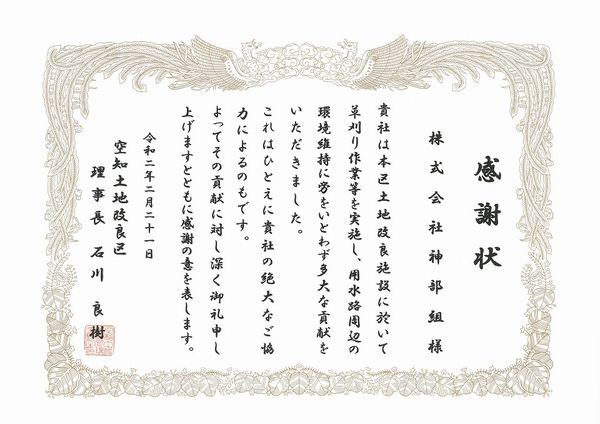 感謝状
株式会社神部組様
貴社は本区土地改良施設に於いて
草刈り作業等を実施し、用水路周辺の
環境維持に労をいとわず多大な貢献を
いただきました。
これはひとえに貴社の絶大なご協
力によるものです。
よってその貢献に対し深く御礼申し
上げますとともに感謝の意を表します。
令和二年二月二十一日
空知土地改良区
理事長 石川 良樹